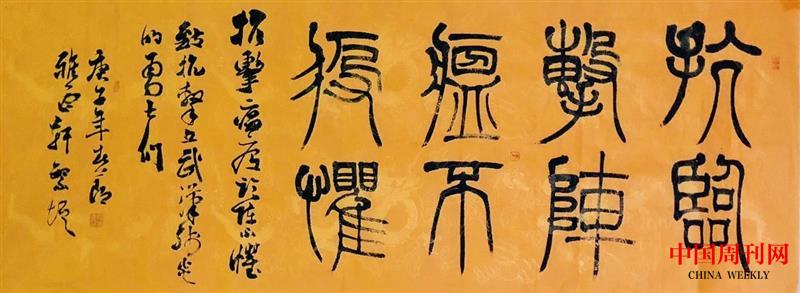 抗擊瘟疫
臨陣不懼
抗擊瘟疫臨陣不懼
抗擊在武漢
的勇士们
庚子年春月
雅正軒
中国周刊网
CHINA WEEKLY